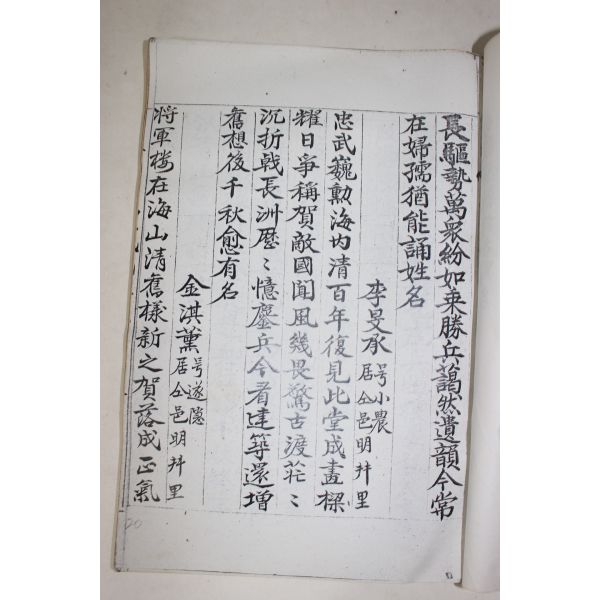 長驅勢萬衆紛如乘勝兵藹然遺韻今常
在婦孺猶能誦姓名
李旻承 号小農 居仝邑明井里
忠武巍勳海內清百年復見此堂成畫樑
耀日爭稱賀敵國聞風幾畏驚古渡茫〻
沉折戟長洲歷〻憶鏖兵今看建築還增
舊想後千秋愈有名
金淇薰 号遂隱 居仝邑明井里
將軍樓在海山清舊樣新之賀落成正氣
20